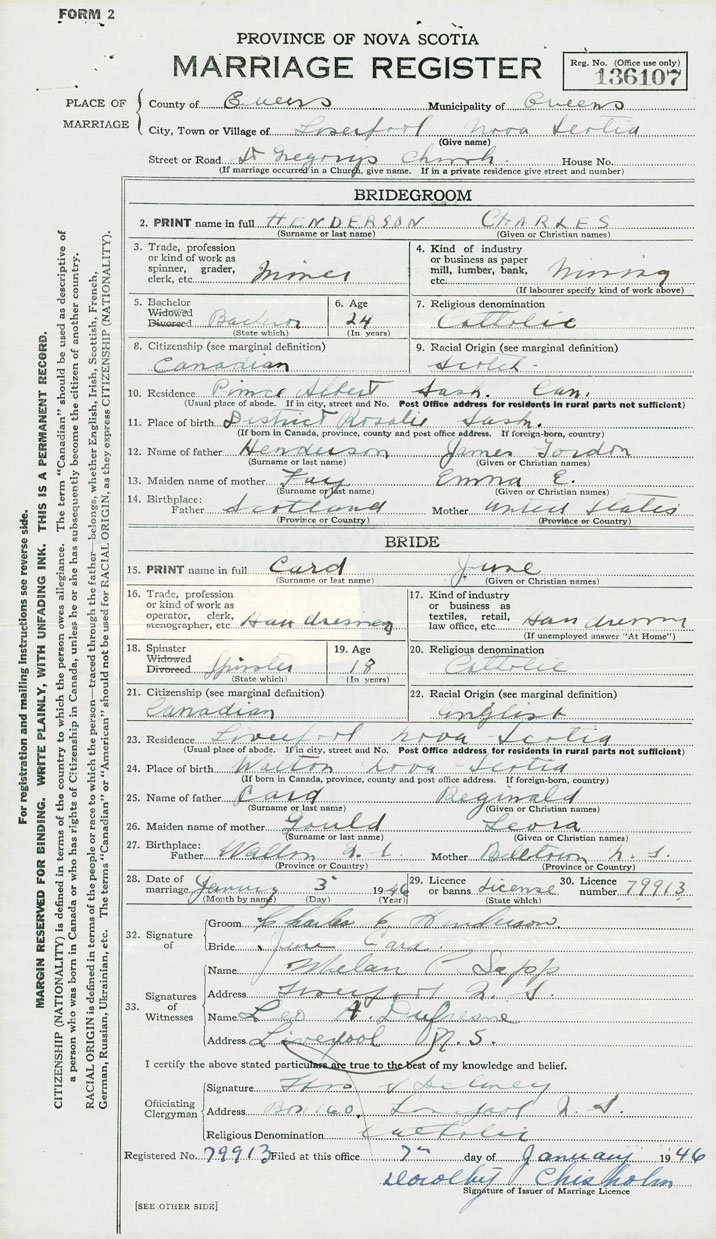 FORM 2
PROVINCE OF NOVA SCOTIA
MARRIAGE REGISTER
Reg. No. (Office use only)
136107
PLACE OF MARRIAGE
County of Queens Municipality of Queens
City, Town or Village of Liverpool Nova Scotia
(Give name)
Street or Road St Gregorys Church. House No.
(If marriage occurred in a Church, give name. If in a private residence give street and number)
BRIDEGROOM
2. PRINT name in full HENDERSON CHARLES
(Surname or last name) (Given or Christian names)
3. Trade, profession or kind of work as spinner, grader, clerk, etc. Miner
4. Kind of industry or business as paper mill, lumber, bank, etc. Mining
(If labourer specify kind of work above)
5. Bachelor Widowed Divorced Bachelor
(State which)
6. Age 24
(In years)
7. Religious denomination Catholic
8. Citizenship (see marginal definition) Canadian
9. Racial Origin (see marginal definition) Scotch
10. Residence Prince Albert Sask. Can.
(Usual place of abode. If in city, street and No. Post Office address for residents in rural parts not sufficient)
11. Place of birth District Rosalie Sask.
(If born in Canada, province, county and post office address. If foreign-born, country)
12. Name of father Henderson James Gordon
(Surname or last name) (Given or Christian names)
13. Maiden name of mother Fay Emma E.
(Surname or last name) (Given or Christian names)
14. Birthplace: Father Scotland Mother United States
(Province or Country) (Province or Country)
BRIDE
15. PRINT name in full Card June
(Surname or last name) (Given or Christian names)
16. Trade, profession or kind of work as operator, clerk, stenographer, etc.
17. Kind of industry or business as textiles, retail, law office, etc.
(If unemployed answer "At Home")
18. Spinster Widowed Divorced Spinster
(State which)
19. Age 18
(In years)
20. Religious denomination Catholic
21. Citizenship (see marginal definition) Canadian
22. Racial Origin (see marginal definition) English
23. Residence Liverpool Nova Scotia
(Usual place of abode. If in city, street and No. Post Office address for residents in rural parts not sufficient)
24. Place of birth Walton Nova Scotia
(If born in Canada, province, county and post office address. If foreign-born, country)
25. Name of father Card Reginald
(Surname or last name) (Given or Christian names)
26. Maiden name of mother Gould Leora
(Surname or last name) (Given or Christian names)
27. Birthplace: Father Walton N. S. Mother N. S.
(Province or Country) (Province or Country)
28. Date of marriage January 5 1946
(Month by name) (Day) (Year)
29. Licence or banns License
(State which)
30. Licence number 79913
32. Signature of
Groom Charles Henderson.
Bride June Card
33. Signatures of Witnesses
Name Sapp
Address Liverpool N. S.
Name Leo A. Dufresne
Address Liverpool N.S.
I certify the above stated particulars are true to the best of my knowledge and belief.
Officiating Clergyman
Signature
Address Box 160. Liverpool N. S.
Religious Denomination Catholic
Registered No. 79913 Filed at this office 7th day of January 1946
Dorothy Chisholm
Signature of Issuer of Marriage Licence
[SEE OTHER SIDE]
For registration and mailing instructions see reverse side.
MARGIN RESERVED FOR BINDING. WRITE PLAINLY, WITH UNFADING INK. THIS IS A PERMANENT RECORD.
CITIZENSHIP (NATIONALITY) is defined in terms of the country to which the person owes allegiance. The term "Canadian" should be used as descriptive of
a person who was born in Canada or who has rights of Citizenship in Canada, unless he or she has subsequently become the citizen of another country.
RACIAL ORIGIN is defined in terms of the people or race to which the person—traced through the father—belongs, whether English, Irish, Scottish, French,
German, Russian, Ukrainian, etc. The terms "Canadian" or "American" should not be used for RACIAL ORIGIN, as they express CITIZENSHIP (NATIONALITY).